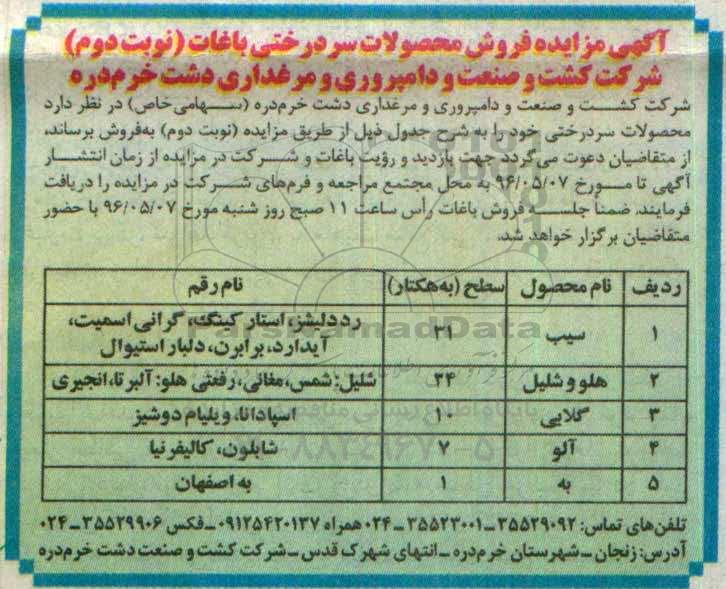 آگهی مزایده فروش محصولات سردرختی باغات (نوبت دوم)
شرکت کشت و صنعت و دامپروری و مرغداری دشت خرم‌دره
شرکت کشت و صنعت و دامپروری و مرغداری دشت خرم‌دره (سهامی خاص) در نظر دارد
محصولات سردرختی خود را به شرح جدول ذیل از طریق مزایده (نوبت دوم) به‌فروش برساند،
از متقاضیان دعوت می‌گردد جهت بازدید و رؤیت باغات و شرکت در مزایده از زمان انتشار
آگهی تا مورخ ۹۶/۰۵/۰۷ به محل مجتمع مراجعه و فرم‌های شرکت در مزایده را دریافت
فرمایند. ضمنا جلسه فروش باغات رأس ساعت ۱۱ صبح روز شنبه مورخ ۹۶/۰۵/۰۷ با حضور
متقاضیان برگزار خواهد شد.
ردیف نام محصول سطح (به‌هکتار) نام رقم
۱ سیب ۳۱ رد دلیشز، استار کینگ، گرانی اسمیت،
آیدارد، برابرن، دلبار استیوال
۲ هلو و شلیل ۳۴ شلیل: شمس، مغانی، رفعتی هلو: آلبرتا، انجیری
۳ گلابی ۱۰ اسپادانا، ویلیام دوشیز
۴ آلو ۷ شابلون، کالیفرنیا
۵ به ۱ به اصفهان
تلفن‌های تماس: ۳۵۵۲۹۰۹۲ـ۳۵۵۲۳۰۰۱ـ۰۲۴ همراه ۰۹۱۲۵۴۲۰۱۳۷ـفکس ۳۵۵۲۹۹۰۶ـ۰۲۴
آدرس: زنجان ـ شهرستان خرم‌دره ـ انتهای شهرک قدس ـ شرکت کشت و صنعت دشت خرم‌دره
ParsNamadData
پایگاه اطلاع رسانی مناقصه
۸۸۳۴۹۶۷۰-۵